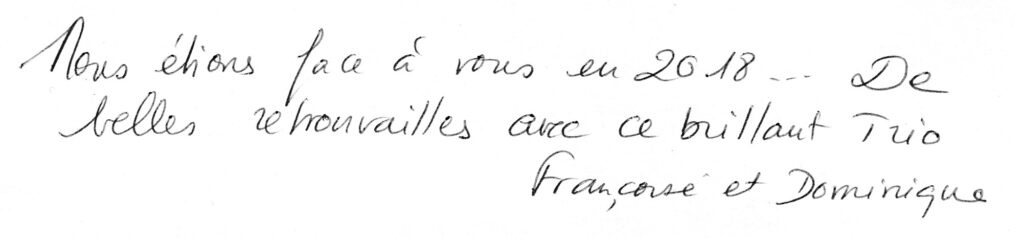 Nous étions face à vous en 2018... De
belles retrouvailles avec ce brillant Trio
Françoise et Dominique